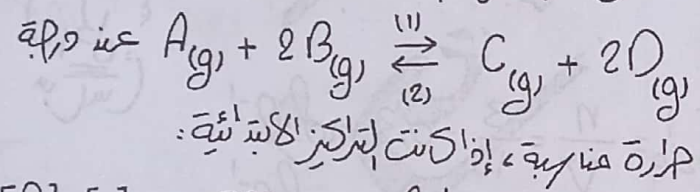 A(g) + 2B(g) ⇌ C(g) + 2D(g) عند درجة
(1)
(2)
حرارة مناسبة، إذا كانت التراكيز الابتدائية: